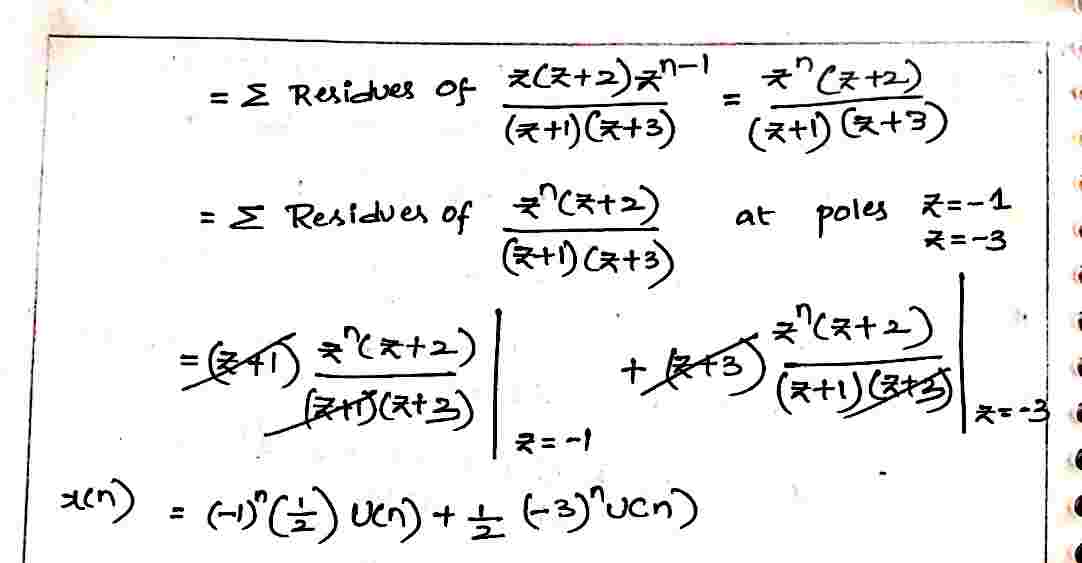 = Σ Residues of z(z+2)z^{n-1} / (z+1)(z+3) = z^n(z+2) / (z+1)(z+3)
= Σ Residues of z^n(z+2) / (z+1)(z+3) at poles z=-1 z=-3
= (z+1) z^n(z+2) / (z+1)(z+3) | z=-1 + (z+3) z^n(z+2) / (z+1)(z+3) | z=-3
x(n) = (-1)^n (1/2) U(n) + 1/2 (-3)^n U(n)